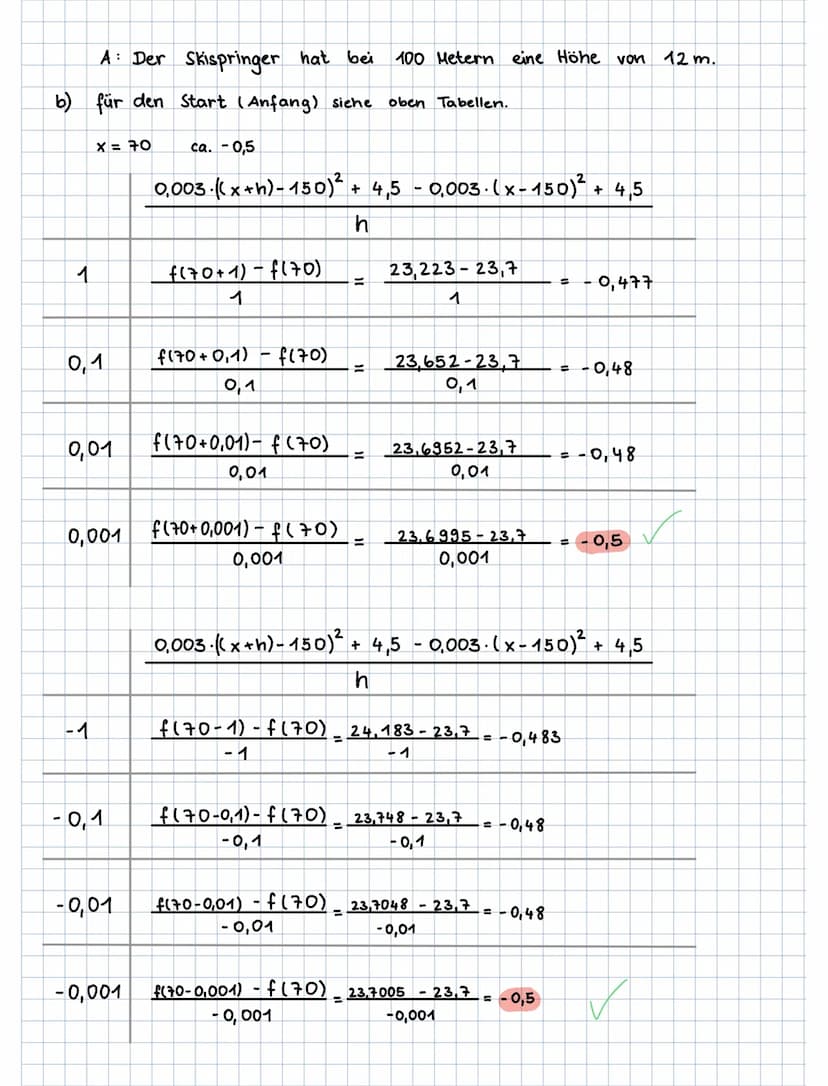 A: Der Skispringer hat bei 100 Metern eine Höhe von 12 m.
b) für den Start (Anfang) siehe oben Tabellen.
x = 70 ca. -0,5
0,003·((x+h)-150)² + 4,5 - 0,003·(x-150)² + 4,5
h
1 f(70+1) - f(70) / 1 = 23,223 - 23,7 / 1 = -0,477
0,1 f(70+0,1) - f(70) / 0,1 = 23,652 - 23,7 / 0,1 = -0,48
0,01 f(70+0,01) - f(70) / 0,01 = 23,6952 - 23,7 / 0,01 = -0,48
0,001 f(70+0,001) - f(70) / 0,001 = 23,6995 - 23,7 / 0,001 = -0,5 ✓
0,003·((x+h)-150)² + 4,5 - 0,003·(x-150)² + 4,5
h
-1 f(70-1) - f(70) / -1 = 24,183 - 23,7 / -1 = -0,483
-0,1 f(70-0,1) - f(70) / -0,1 = 23,748 - 23,7 / -0,1 = -0,48
-0,01 f(70-0,01) - f(70) / -0,01 = 23,7048 - 23,7 / -0,01 = -0,48
-0,001 f(70-0,001) - f(70) / -0,001 = 23,7005 - 23,7 / -0,001 = -0,5 ✓